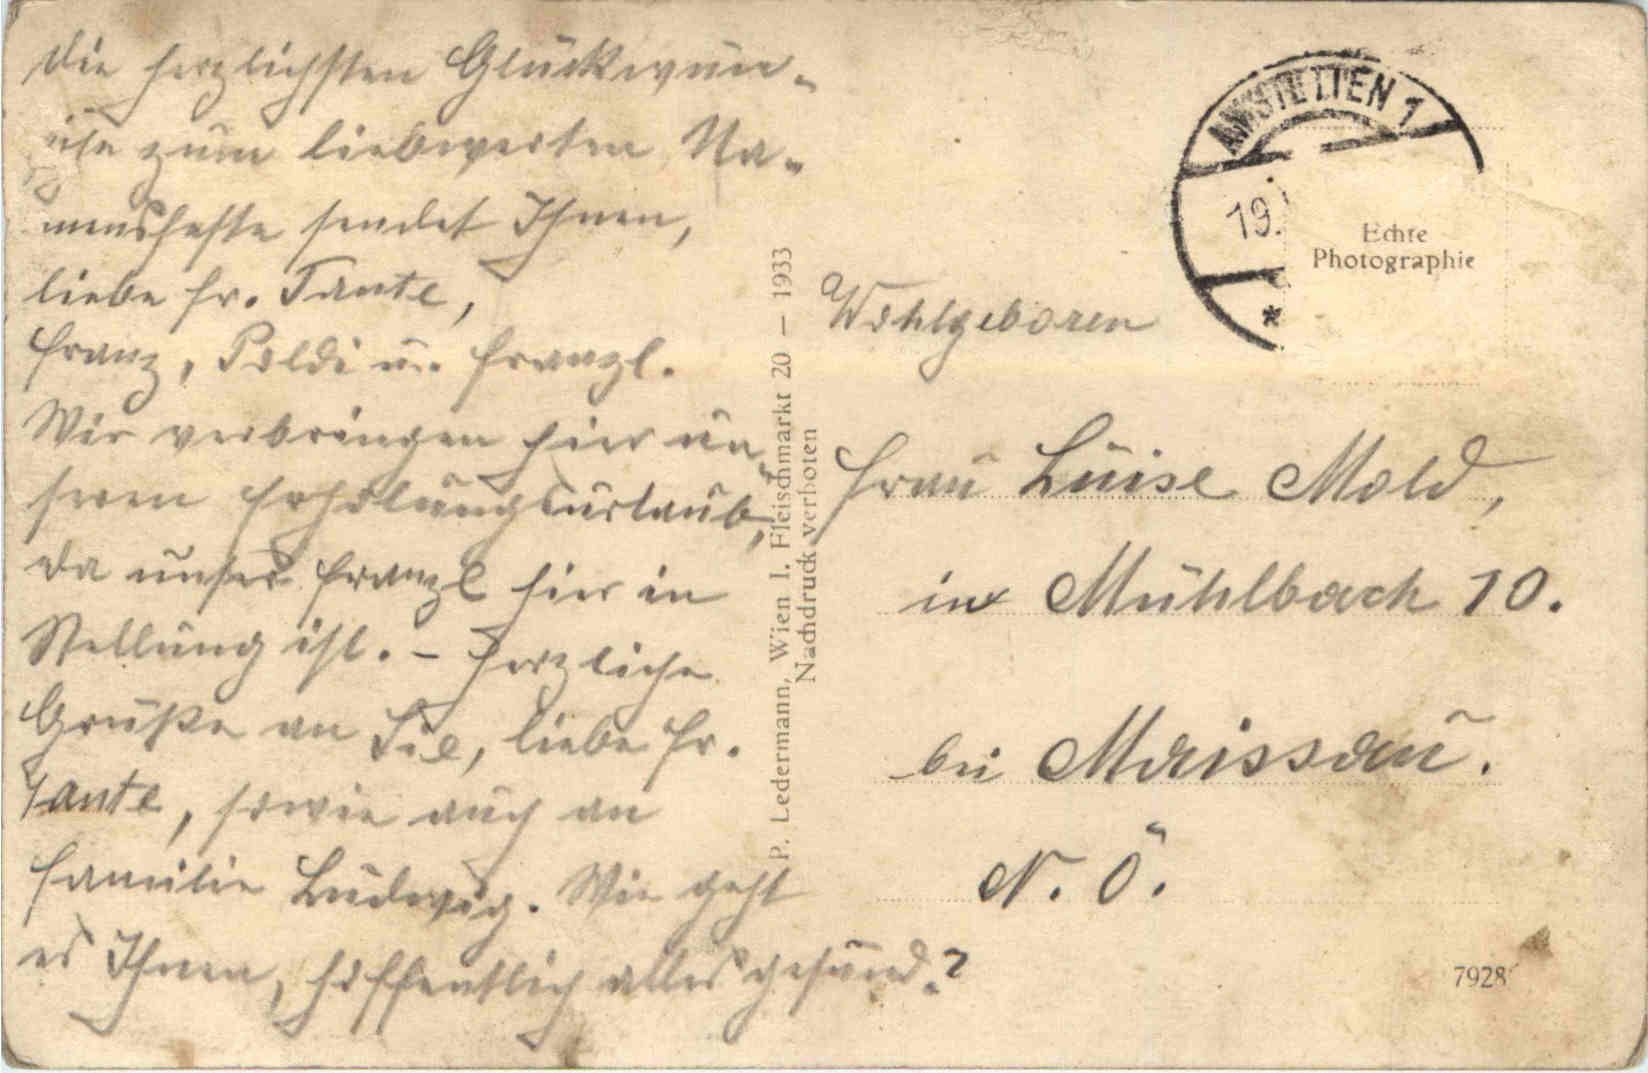 die herzlichsten Glückwün-
sche zum liebwerten Na-
mensfeste sendet Ihnen,
liebe Fr. Tante,
Franz, Poldi u. Franzl.
Wir verbringen hier un-
seren Erholungsurlaub,
da unser Franzl hier in
Stellung ist. – Herzliche
Grüße an Sie, liebe Fr.
Tante, sowie auch an
Familie Ludwig. Wie geht
es Ihnen, hoffentlich alles gesund?
P. Ledermann, Wien I. Fleischmarkt 20 – 1933
Nachdruck verboten
AMSTETTEN 1
19.
*
Echte
Photographie
Wohlgeboren
Frau Luise Mold,
in Mühlbach 10.
bei Maissau.
N. Ö.
7928